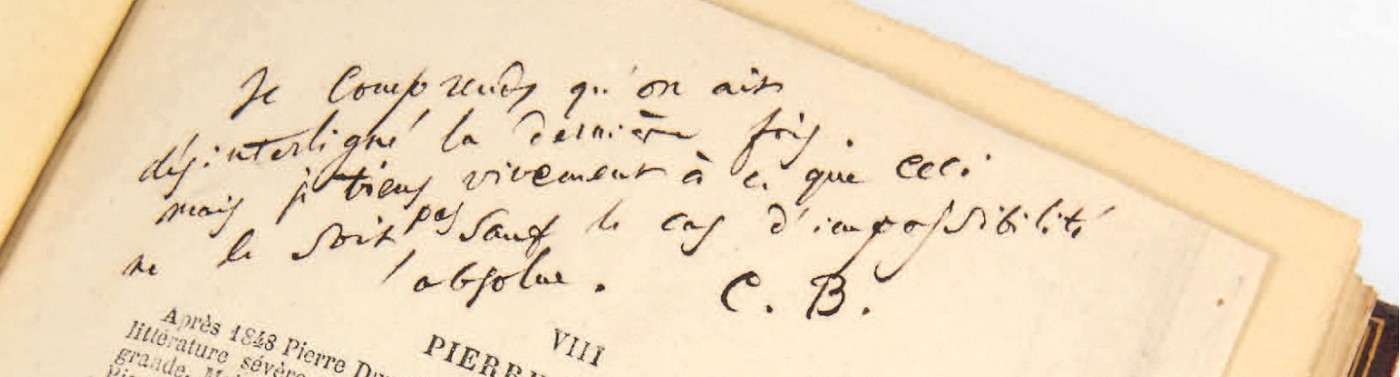 Je Comprends qu'on ait
désinterligné la dernière fois.
mais je tiens vivement à ce que ceci
ne le soit pas sauf le cas d'impossibilité
absolue. C. B.
VIII
PIERRE
Après 1848 Pierre
littérature sévère
grande.